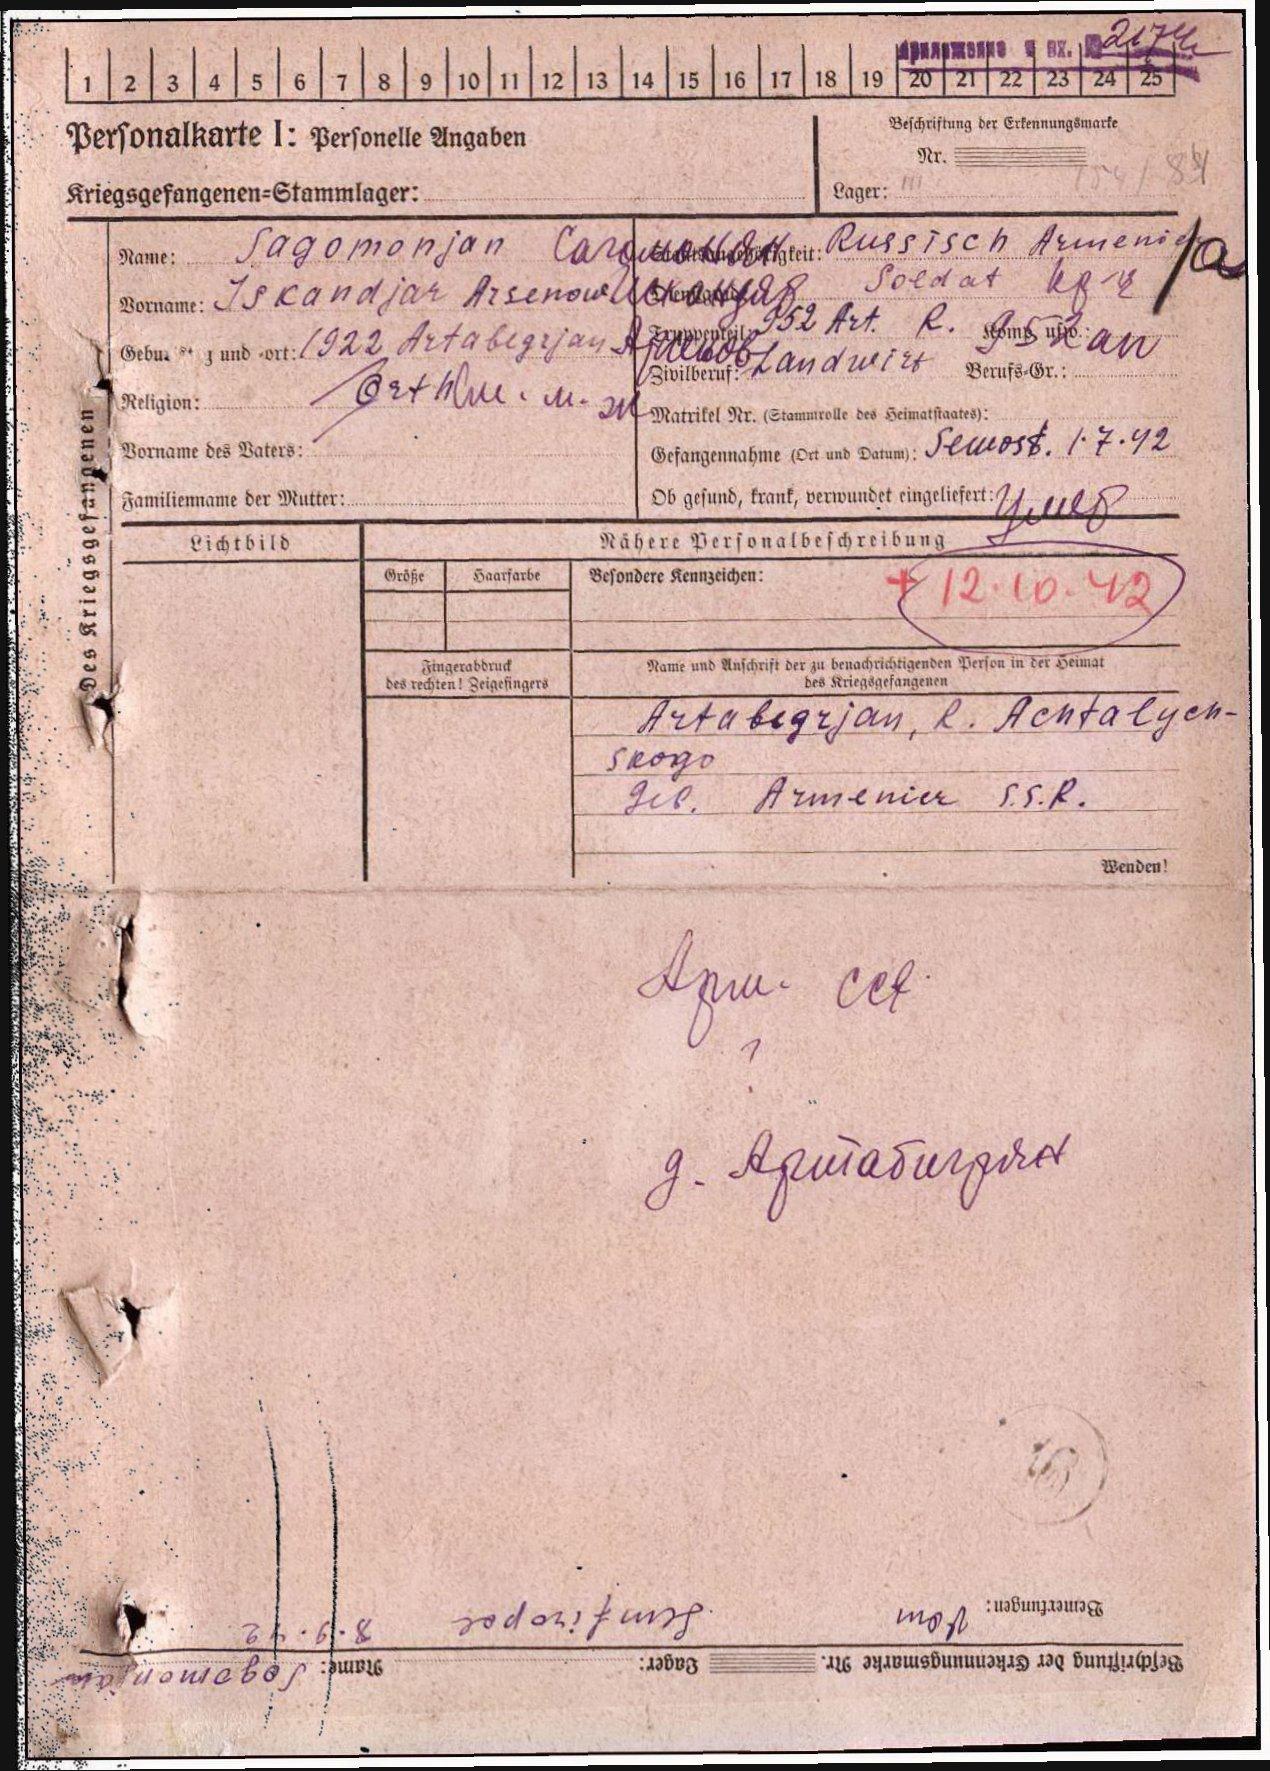 приложение к вх. № 2174с
1 2 3 4 5 6 7 8 9 10 11 12 13 14 15 16 17 18 19 20 21 22 23 24 25
Personalkarte I: Personelle Angaben
Beschriftung der Erkennungsmarke
Nr.
Kriegsgefangenen=Stammlager:
Lager:
Des Kriegsgefangenen
Name: Sagomonjan Сагомонян
Vorname: Iskandjar Arsenow Искандяр
und ort: 1922 Artabegrjan Арсенов
Religion: Orth
Vorname des Vaters:
Familienname der Mutter:
Staatsangehörigkeit: Russisch Armenier
Dienstgrad: Soldat кр-ц
Truppenteil: 952 Art. R. Komp. usw.: 952 ап
Zivilberuf: Landwirt Berufs-Gr.:
Matrikel Nr. (Stammrolle des Heimatstaates):
Gefangennahme (Ort und Datum): Sewost. 1.7.42
Ob gesund, krank, verwundet eingeliefert: Умер
Lichtbild
Nähere Personalbeschreibung
Größe Haarfarbe Besondere Kennzeichen: + 12.10.42
Fingerabdruck
des rechten! Zeigefingers
Name und Anschrift der zu benachrichtigenden Person in der Heimat
des Kriegsgefangenen
Artabegrjan, R. Achtalych-
skogo
Geb. Armenier S.S.R.
Wenden!
Арм. ССР
?
д. Артабигрян
Beschriftung der Erkennungsmarke Nr. Lager: Name: Sogomonjan
Bemerkungen: Vom Simfiropol 8.9.42